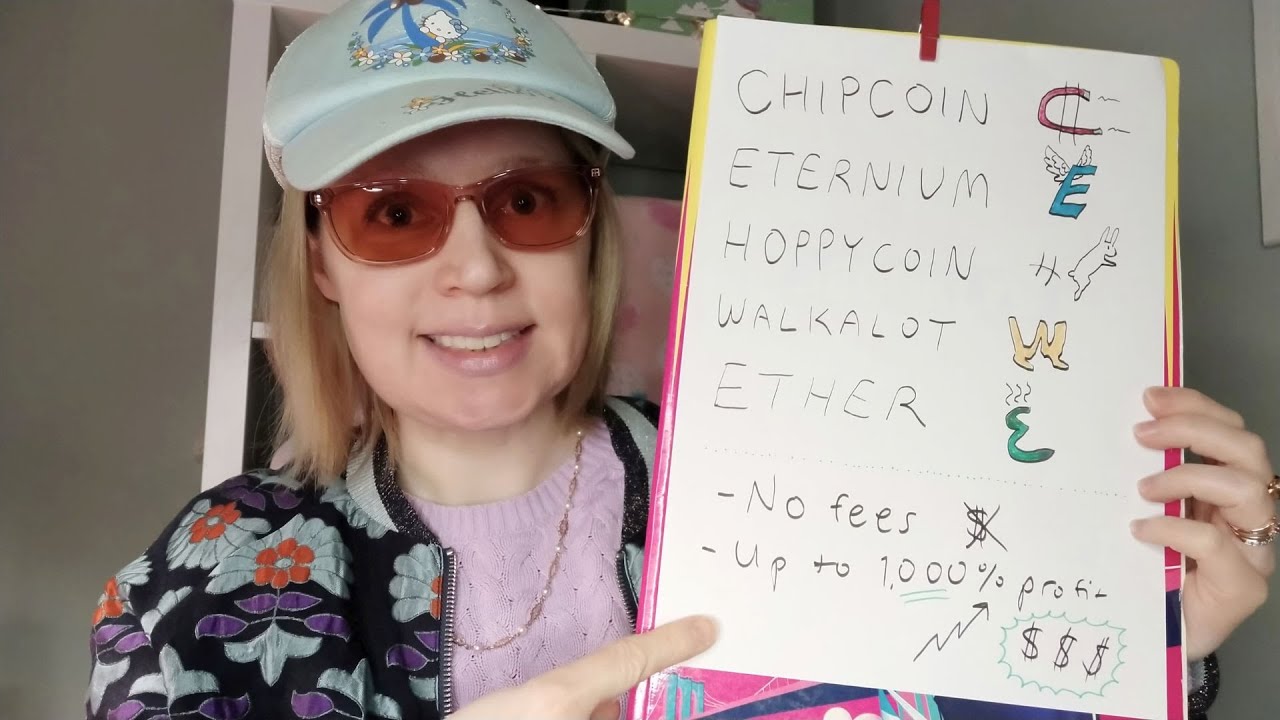 CHIPCOIN
ETERNIUM E
HOPPYCOIN #
WALKALOT W
ETHER
- No fees $
- Up to 1,000% profit
$ $ $